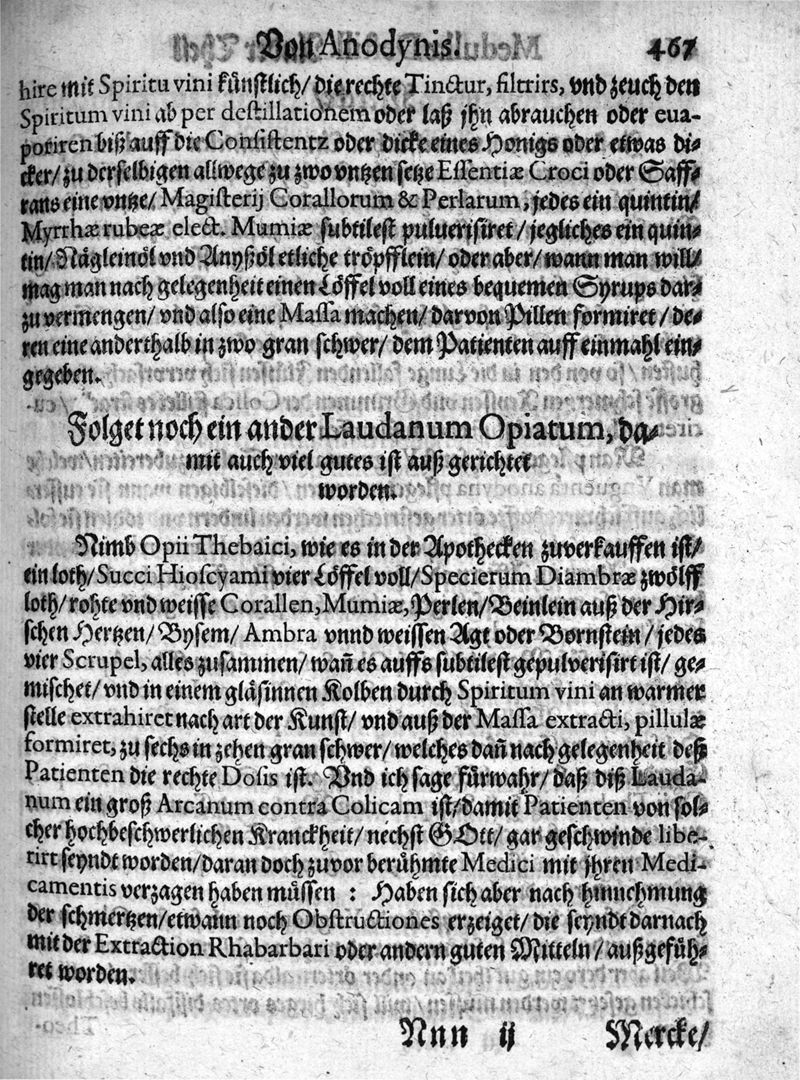 Von Anodynis. 467
hire mit Spiritu vini kůnstlich/ die rechte Tinctur, filtrirs, vnd zeuch den
Spiritum vini ab per destillationem oder laß jhn abrauchen oder eua-
poriren biß auff die Consistentz oder dicke eines Honigs oder etwas di-
cker/ zu derselbigen allwege zu zwo vntzen setze Essentiæ Croci oder Saff-
rans eine vntze/ Magisterij Corallorum & Perlarum, jedes ein quintin/
Myrrhæ rubeæ elect. Mumiæ subtilest puluerisiret/ jegliches ein quin-
tin/ Nägleinöl vnd Anyßöl etliche tröpfflein/ oder aber/ wann man will/
mag man nach gelegenheit einen Löffel voll eines bequemen Syrups dar-
zu vermengen/ vnd also eine Massa machen/ darvon Pillen formiret/ de-
ren eine anderthalb in zwo gran schwer/ dem Patienten auff einmahl ein-
gegeben.
Folget noch ein ander Laudanum Opiatum, da-
mit auch viel gutes ist auß gerichtet
worden.
Nimb Opii Thebaici, wie es in der Apothecken zuverkauffen ist/
ein loth/ Succi Hioscyami vier Löffel voll/ Specierum Diambræ zwölff
loth/ rohte vnd weisse Corallen, Mumiæ, Perlen/ Beinlein auß der Hir-
schen Hertzen/ Bysem/ Ambra vnnd weissen Agt oder Bornstein/ jedes
vier Scrupel, alles zusammen/ wañ es auffs subtilest gepulverisirt ist/ ge-
mischet/ vnd in einem gläsinnen Kolben durch Spiritum vini an warmer
stelle extrahiret nach art der Kunst/ vnd auß der Massa extracti, pillulæ
formiret, zu sechs in zehen gran schwer/ welches dañ nach gelegenheit deß
Patienten die rechte Dosis ist. Vnd ich sage fürwahr/ daß diß Lauda-
num ein groß Arcanum contra Colicam ist/ damit Patienten von sol-
cher hochbeschwerlichen Kranckheit/ nechst GOtt/ gar geschwinde libe-
rirt seyndt worden/ daran doch zuvor berühmte Medici mit jhren Medi-
camentis verzagen haben müssen : Haben sich aber nach hinnehmung
der schmertzen/ etwann noch Obstructiones erzeiget/ die seyndt darnach
mit der Extraction Rhabarbari oder andern guten Mitteln/ außgefüh-
ret worden.
Nnn ij Mercke/